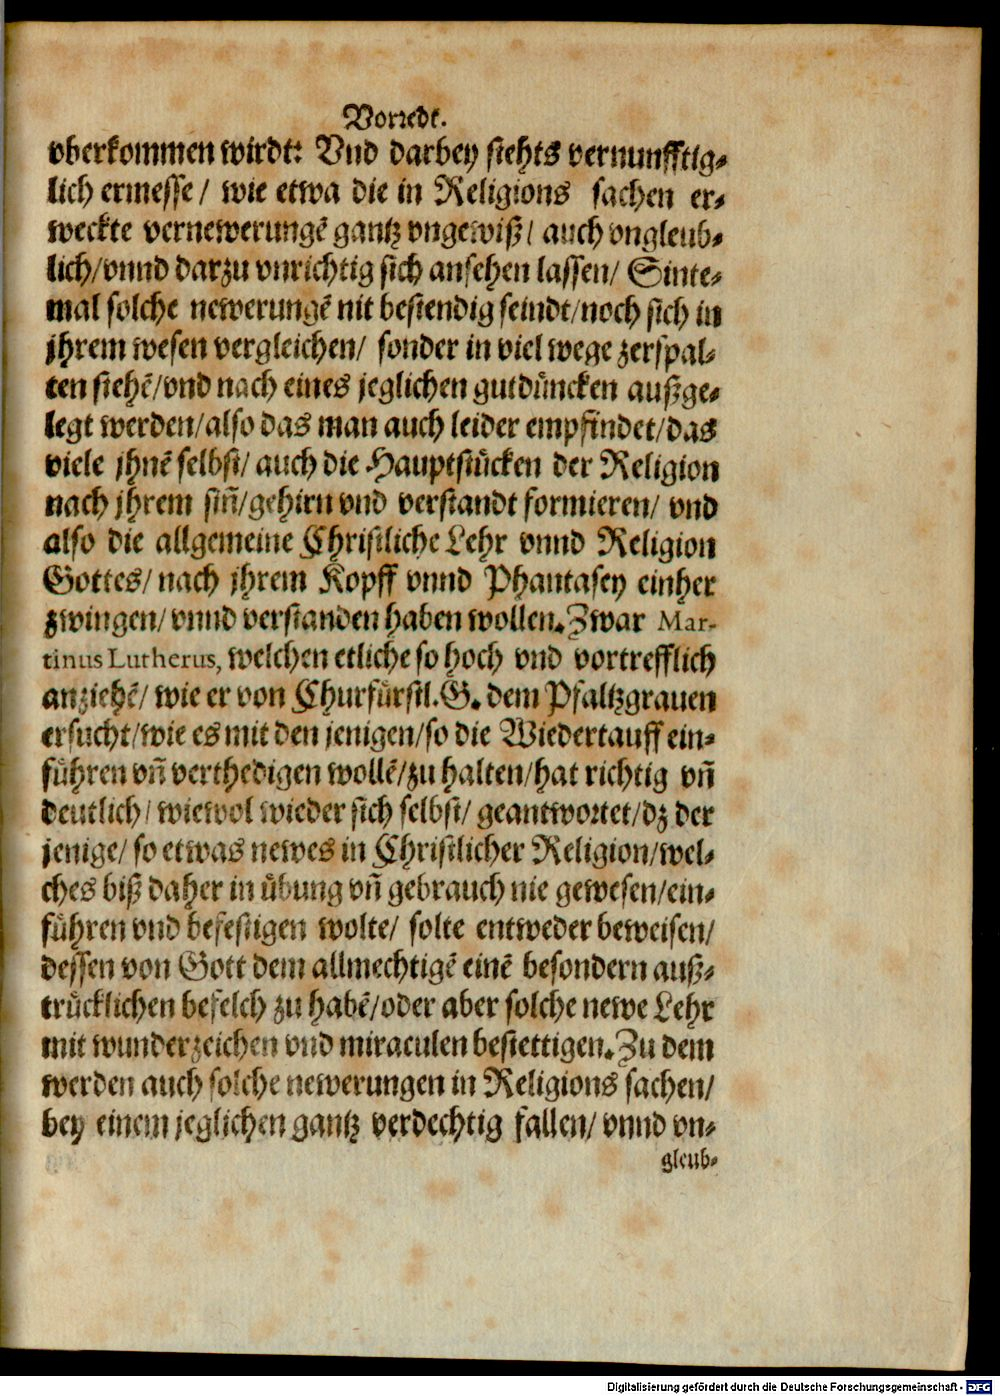 Vorredt.
vberkommen wirdt: Vnd darbey stehts vernunfftig-
lich ermesse / wie etwa die in Religions sachen er-
weckte vernewerungẽ gantz vngewiß / auch vngleub-
lich / vnnd darzu vnrichtig sich ansehen lassen / Sinte-
mal solche newerungẽ nit bestendig seindt / noch sich in
jhrem wesen vergleichen / sonder in viel wege zerspal-
ten stehẽ / vnd nach eines jeglichen gutdůncken außge-
legt werden / also das man auch leider empfindet / das
viele jhnẽ selbst / auch die Hauptstůcken der Religion
nach jhrem sin̄ / gehirn vnd verstandt formieren / vnd
also die allgemeine Christliche Lehr vnnd Religion
Gottes / nach jhrem Kopff vnnd Phantasey einher
zwingen / vnnd verstanden haben wollen. Zwar Mar-
tinus Lutherus, welchen etliche so hoch vnd vortrefflich
anziehẽ / wie er von Churfůrstl. G. dem Pfaltzgrauen
ersucht / wie es mit den jenigen / so die Wiedertauff ein-
fůhren vn̄ verthedigen wollẽ / zu halten / hat richtig vn̄
deutlich / wiewol wieder sich selbst / geantwortet / dz der
jenige / so etwas newes in Christlicher Religion / wel-
ches biß daher in ůbung vn̄ gebrauch nie gewesen / ein-
fůhren vnd befestigen wolte / solte entweder beweisen /
dessen von Gott dem allmechtigẽ einẽ besondern auß-
trůcklichen befelch zu habẽ / oder aber solche newe Lehr
mit wunderzeichen vnd miraculen bestettigen. Zu dem
werden auch solche newerungen in Religions sachen /
bey einem jeglichen gantz verdechtig fallen / vnnd vn-
gleub-
Digitalisierung gefördert durch die Deutsche Forschungsgemeinschaft - DFG